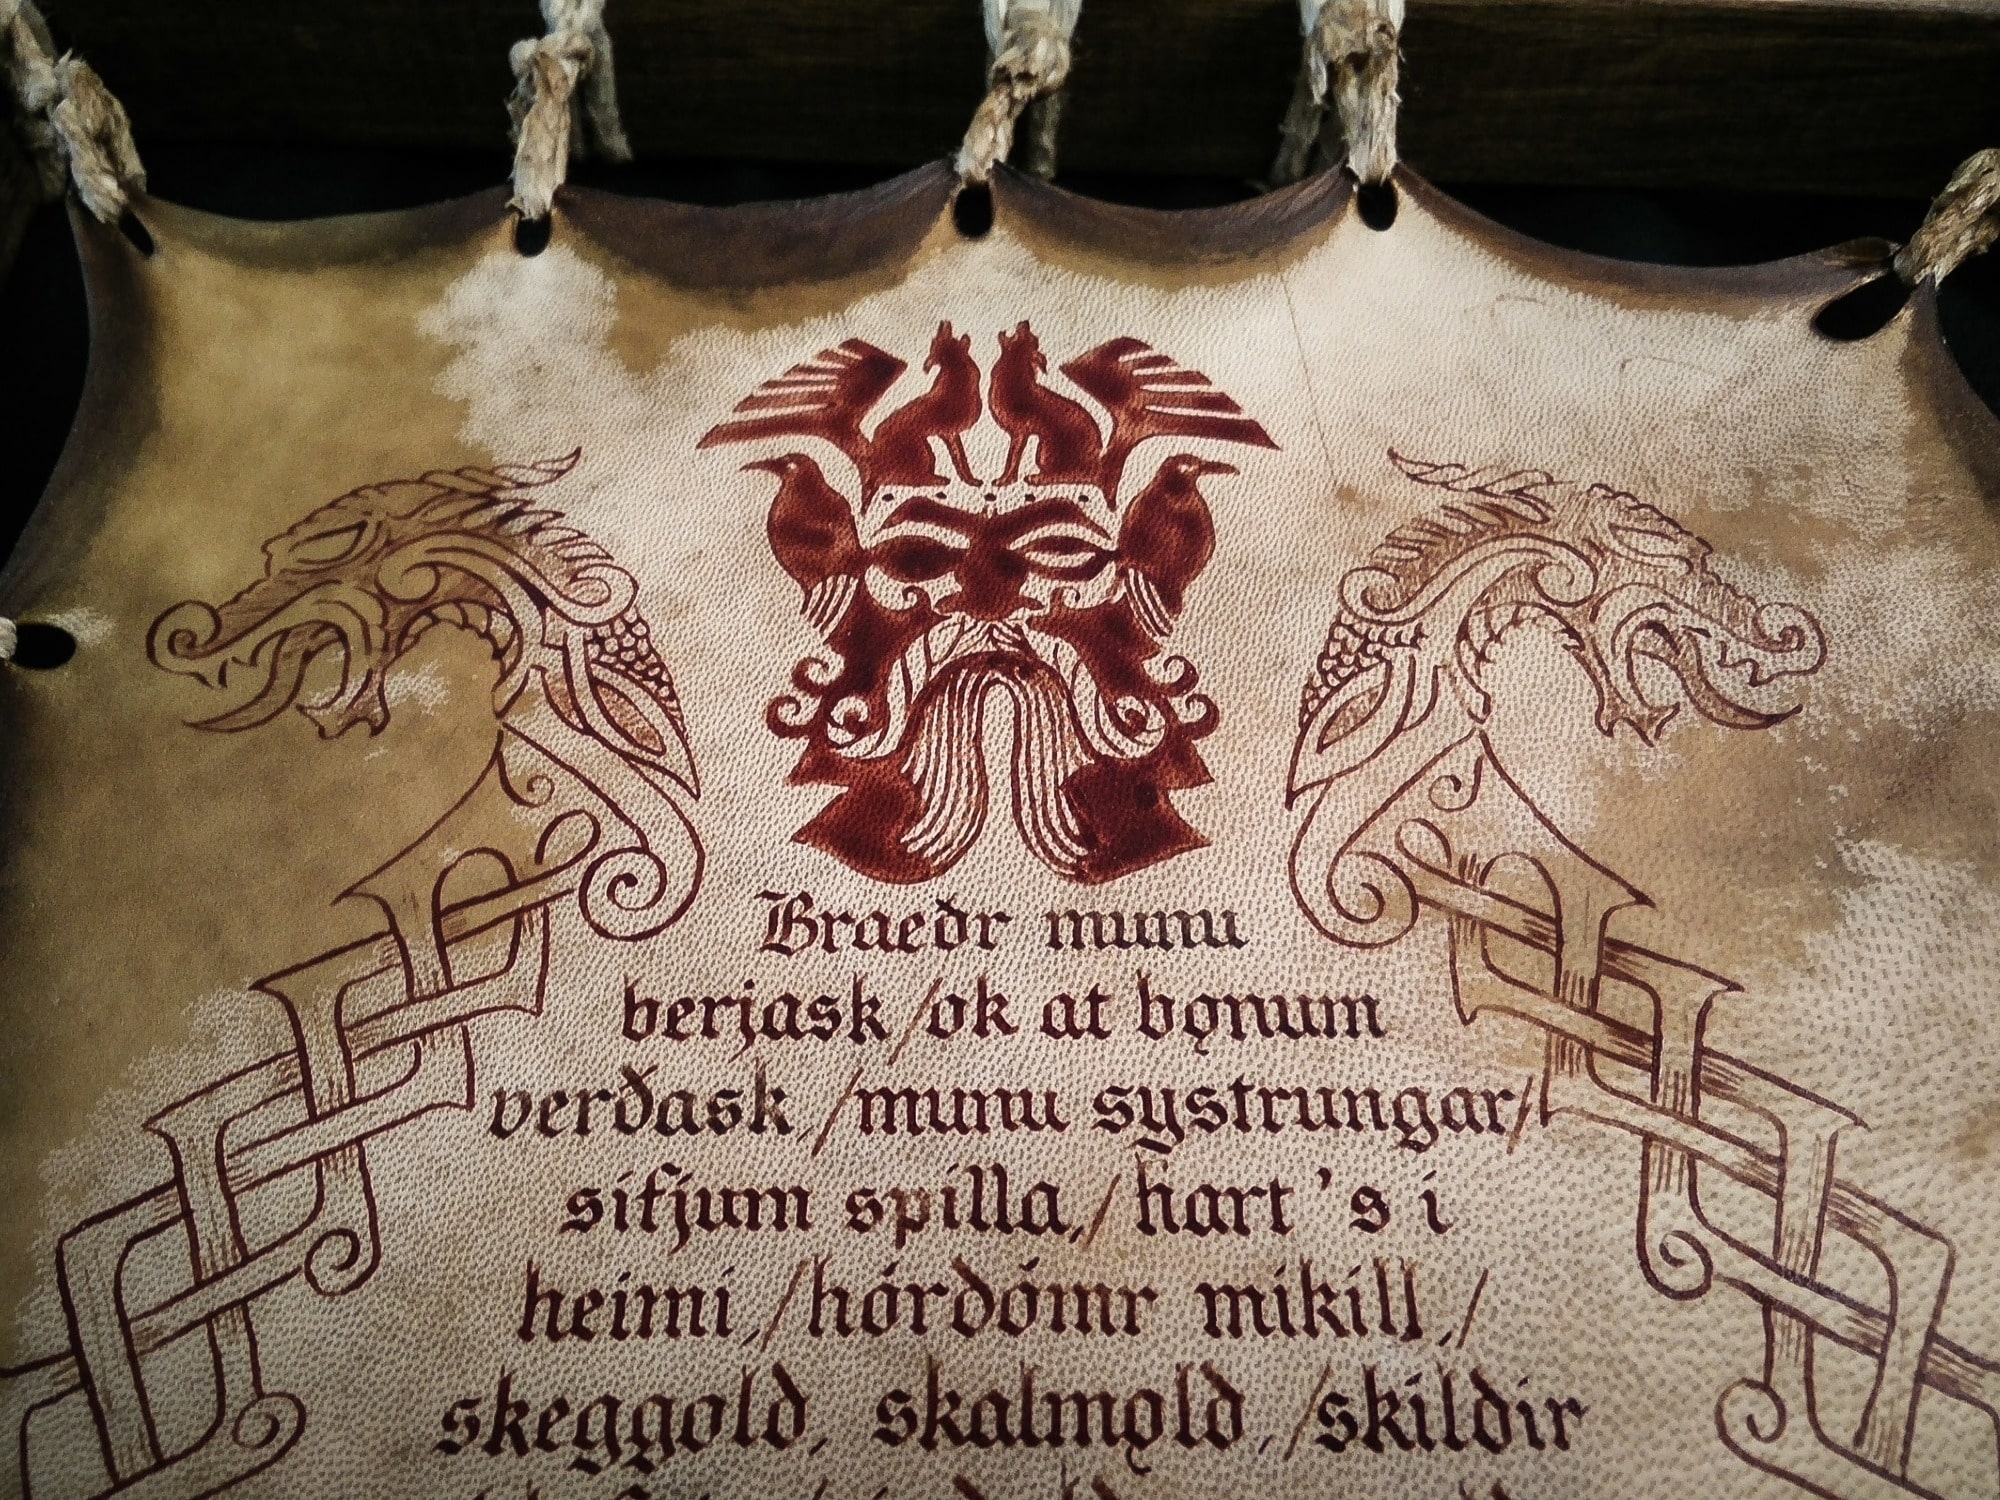 Braeðr munu
berjask /ok at bǫnum
verðask /munu systrungar/
sifjum spilla,/ hart's i
heimi,/hórðómr mikill,/
skeggǫld, skalmǫld, /skildir